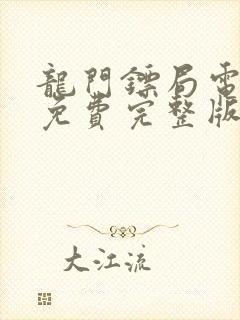 龍門鏢局電
免費完整版
大江流